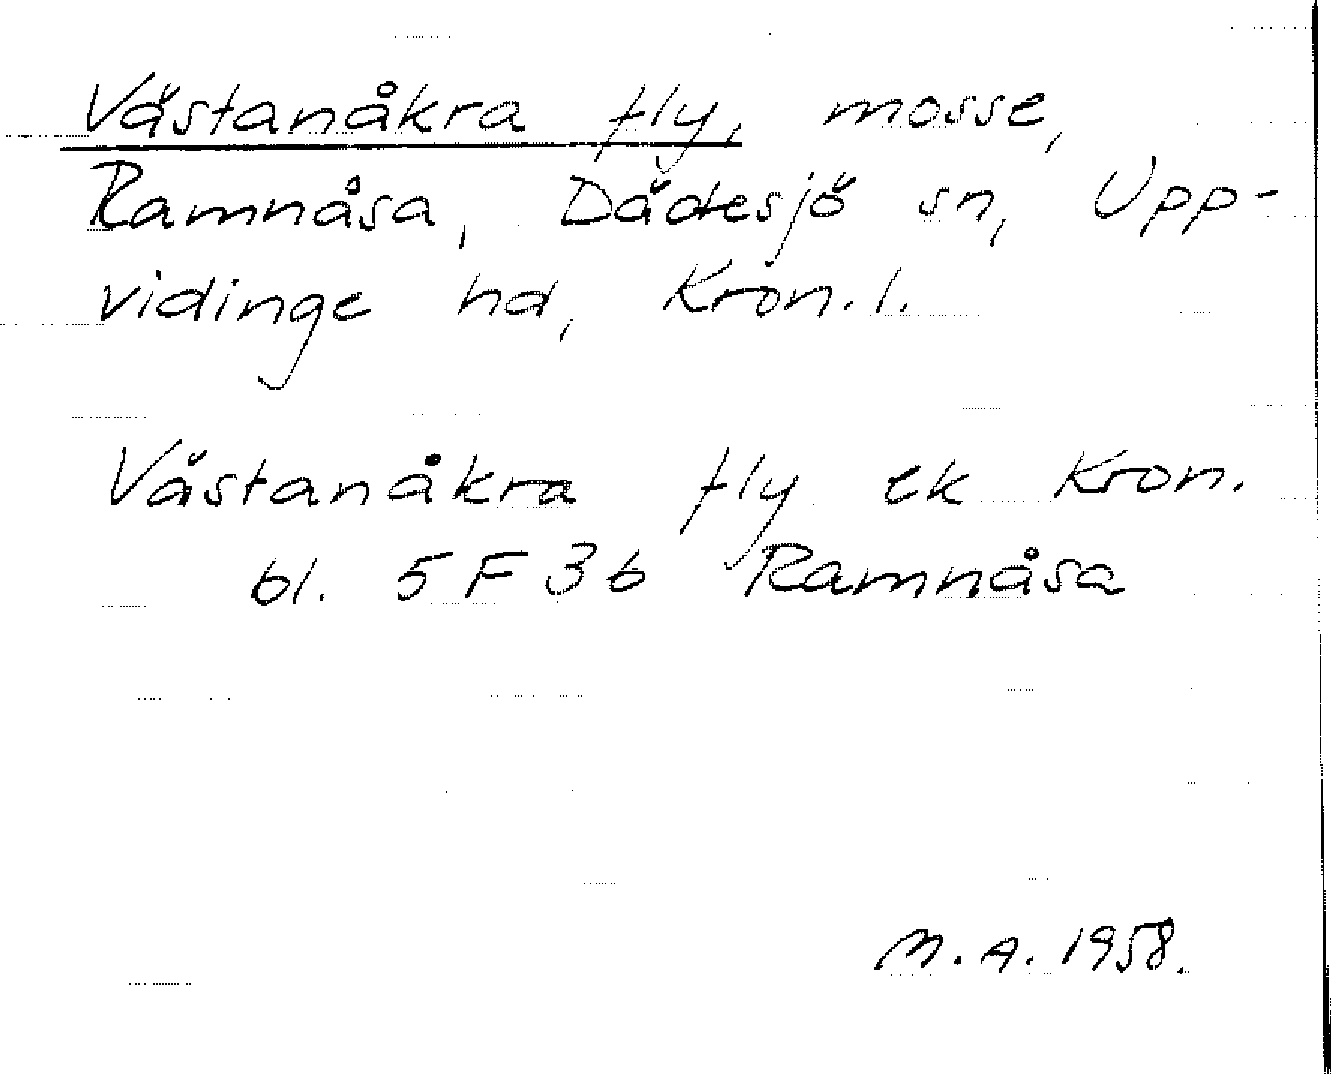 Västanåkra fly, mosse,
Ramnåsa, Dädesjö sn, Upp-
vidinge hd, Kron. l.
Västanåkra fly ek Kron.
bl. 5 F 3 b Ramnåsa
M. A. 1958.